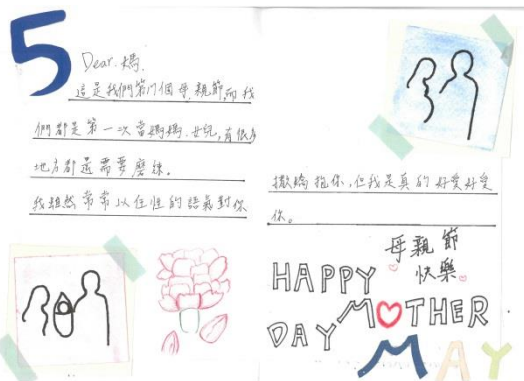 5
Dear.媽.
這是我們第17個母親節,而我
們都是第一次當媽媽、女兒,有很多
地方都還需要磨練。
我雖然常常以任性的語氣對你
你,但我是真的好愛好愛
你。
母親節
快樂
HAPPY
MOTHER
DAY
MAY